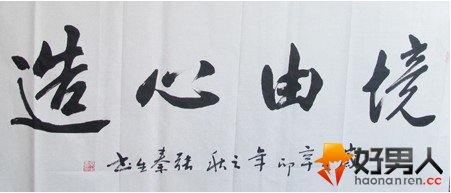 境由心造
歲辛卯年之秋 張秦生书
好男人
haonanren.cc